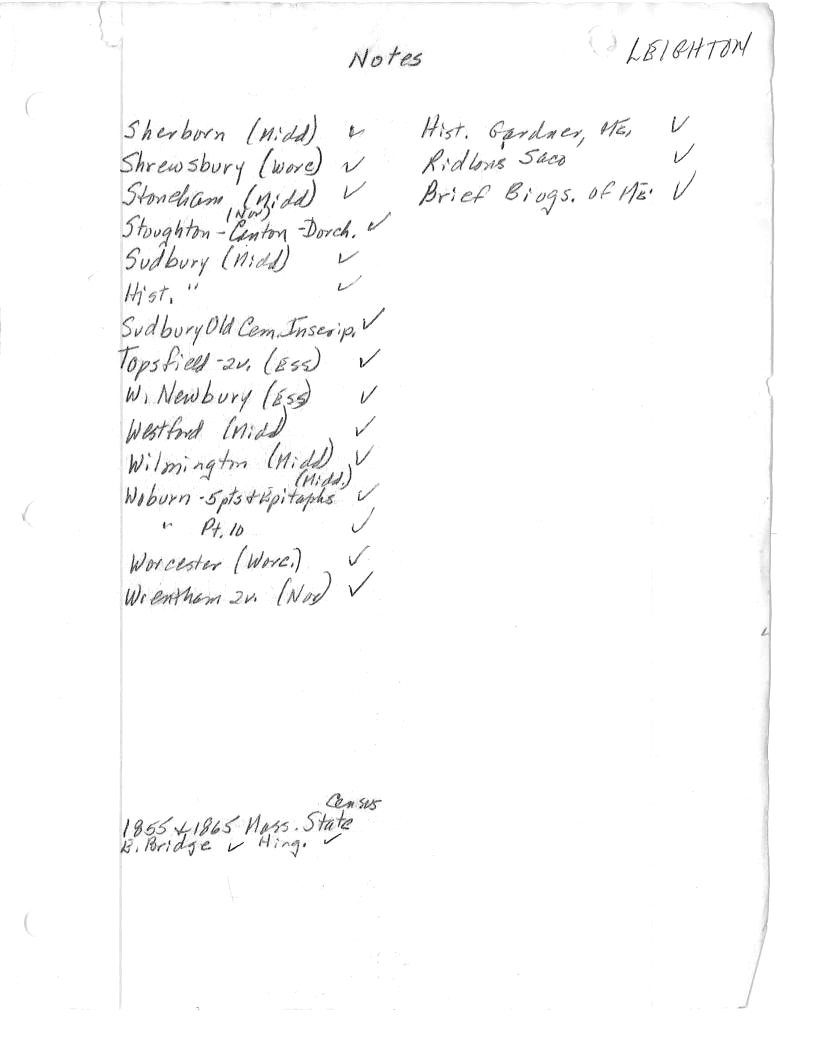 Notes
LEIGHTON
Sherborn (Midd) ✓
Shrewsbury (Worc) ✓
Stoneham (Midd) ✓
(Nor)
Stoughton - Canton - Dorch. ✓
Sudbury (Midd) ✓
Hist. " ✓
Sudbury Old Cem. Inscrip. ✓
Topsfield - 2v. (Ess) ✓
W. Newbury (Ess) ✓
Westford (Midd) ✓
Wilmington (Midd) ✓
(Midd.)
Woburn - 5 pts + Epitaphs ✓
" Pt. 10 ✓
Worcester (Worc.) ✓
Wrentham 2v. (Nor) ✓
Hist. Gardner, ME. ✓
Ridlons' Saco ✓
Brief Biogs. of ME. ✓
Census
1855 + 1865 Mass. State
E. Bridge ✓ Hing. ✓